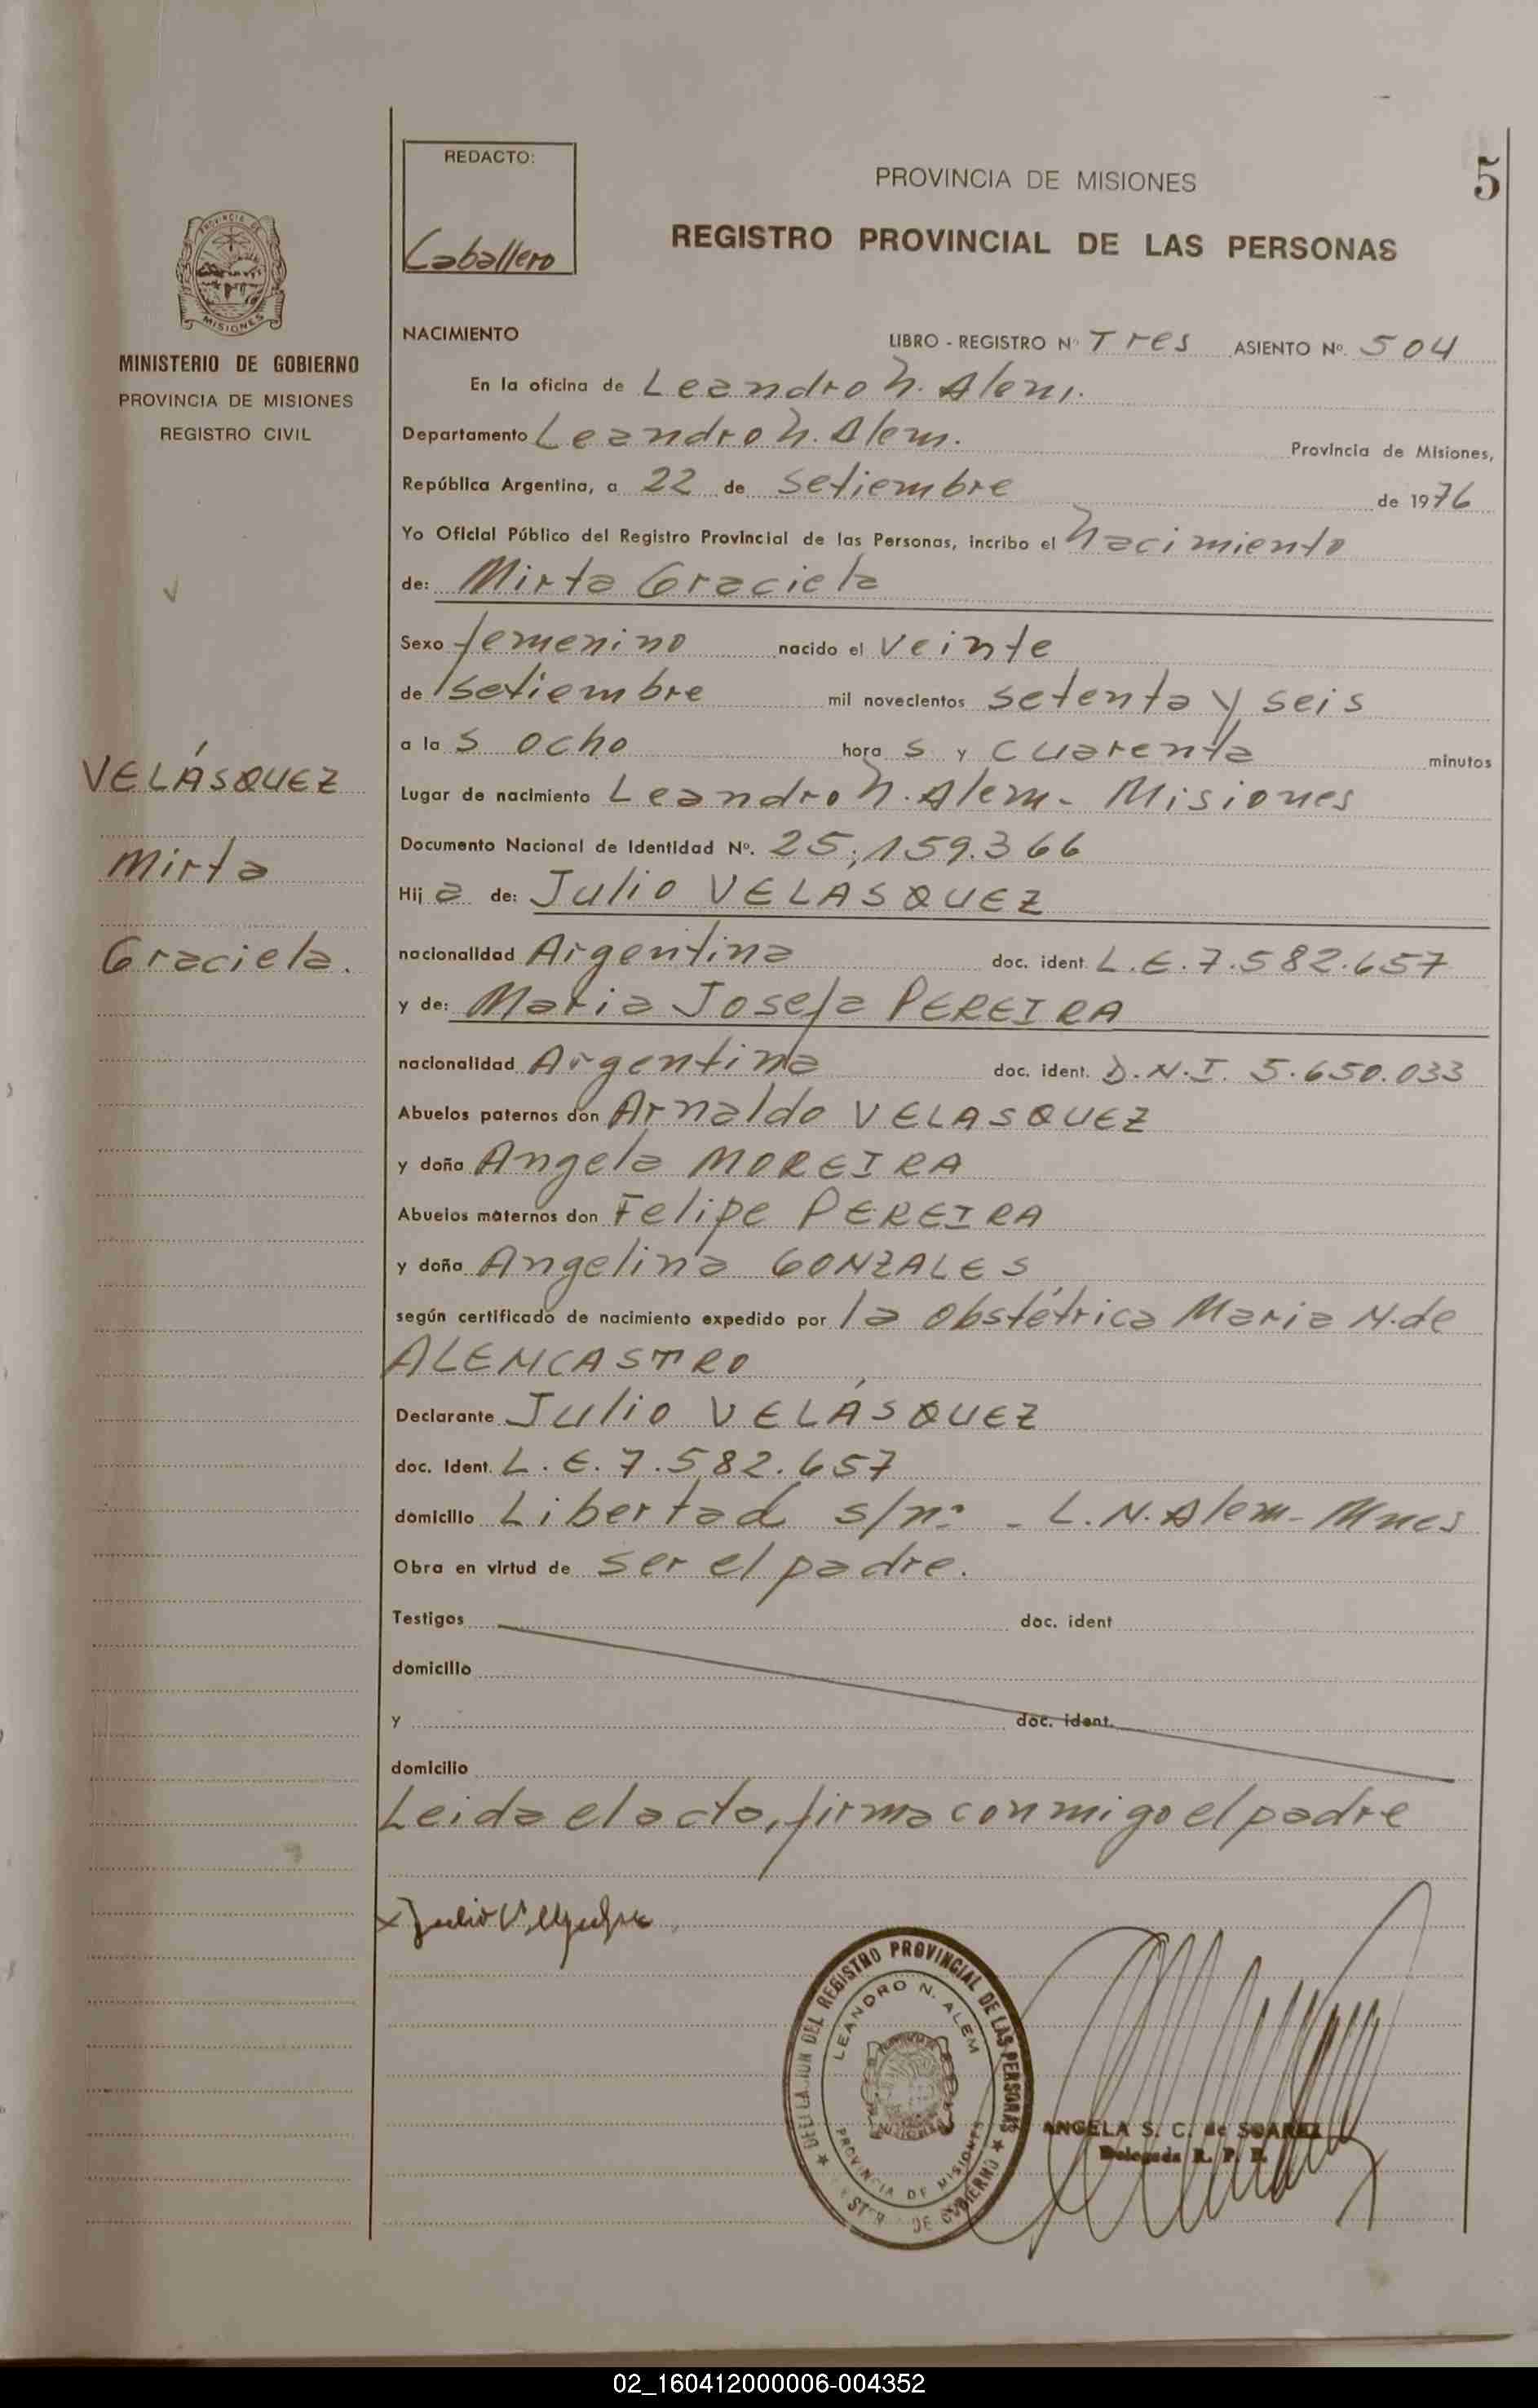 REDACTO:
Caballero
PROVINCIA DE MISIONES
5
REGISTRO PROVINCIAL DE LAS PERSONAS
PROVINCIA DE
MISIONES
MINISTERIO DE GOBIERNO
PROVINCIA DE MISIONES
REGISTRO CIVIL
VELÁSQUEZ
Mirta
Graciela.
NACIMIENTO LIBRO - REGISTRO Nº Tres ASIENTO Nº. 504
En la oficina de Leandro N. Alem.
Departamento Leandro N. Alem. Provincia de Misiones,
República Argentina, a 22 de Setiembre de 1976
Yo Oficial Público del Registro Provincial de las Personas, incribo el Nacimiento
de: Mirta Graciela
Sexo femenino nacido el veinte
de setiembre mil novecientos setenta y seis
a la s ocho hora s y cuarenta minutos
Lugar de nacimiento Leandro N. Alem - Misiones
Documento Nacional de Identidad Nº. 25.159.366
Hij a de: Julio VELÁSQUEZ
nacionalidad Argentina doc. ident. L.E. 7.582.657
y de: Maria Josefa PEREIRA
nacionalidad Argentina doc. ident. D.N.I. 5.650.033
Abuelos paternos don Arnaldo VELASQUEZ
y doña Angela MOREIRA
Abuelos maternos don Felipe PEREIRA
y doña Angelina GONZALES
según certificado de nacimiento expedido por la Obstétrica Maria N. de
ALENCASTRO
Declarante Julio VELÁSQUEZ
doc. Ident. L.E. 7.582.657
domicilio Libertad s/nº - L.N. Alem - Mnes
Obra en virtud de ser el padre.
Testigos doc. ident
domicilio
y doc. ident.
domicilio
Leida el acta, firma conmigo el padre
x Julio
DEL REGISTRO PROVINCIAL DE LAS PERSONAS
LEANDRO N. ALEM
PROVINCIA DE MISIONES
DE GOBIERNO
ANGELA S. C. de SUAREZ
Delegada R. P. P.
02_160412000006-004352